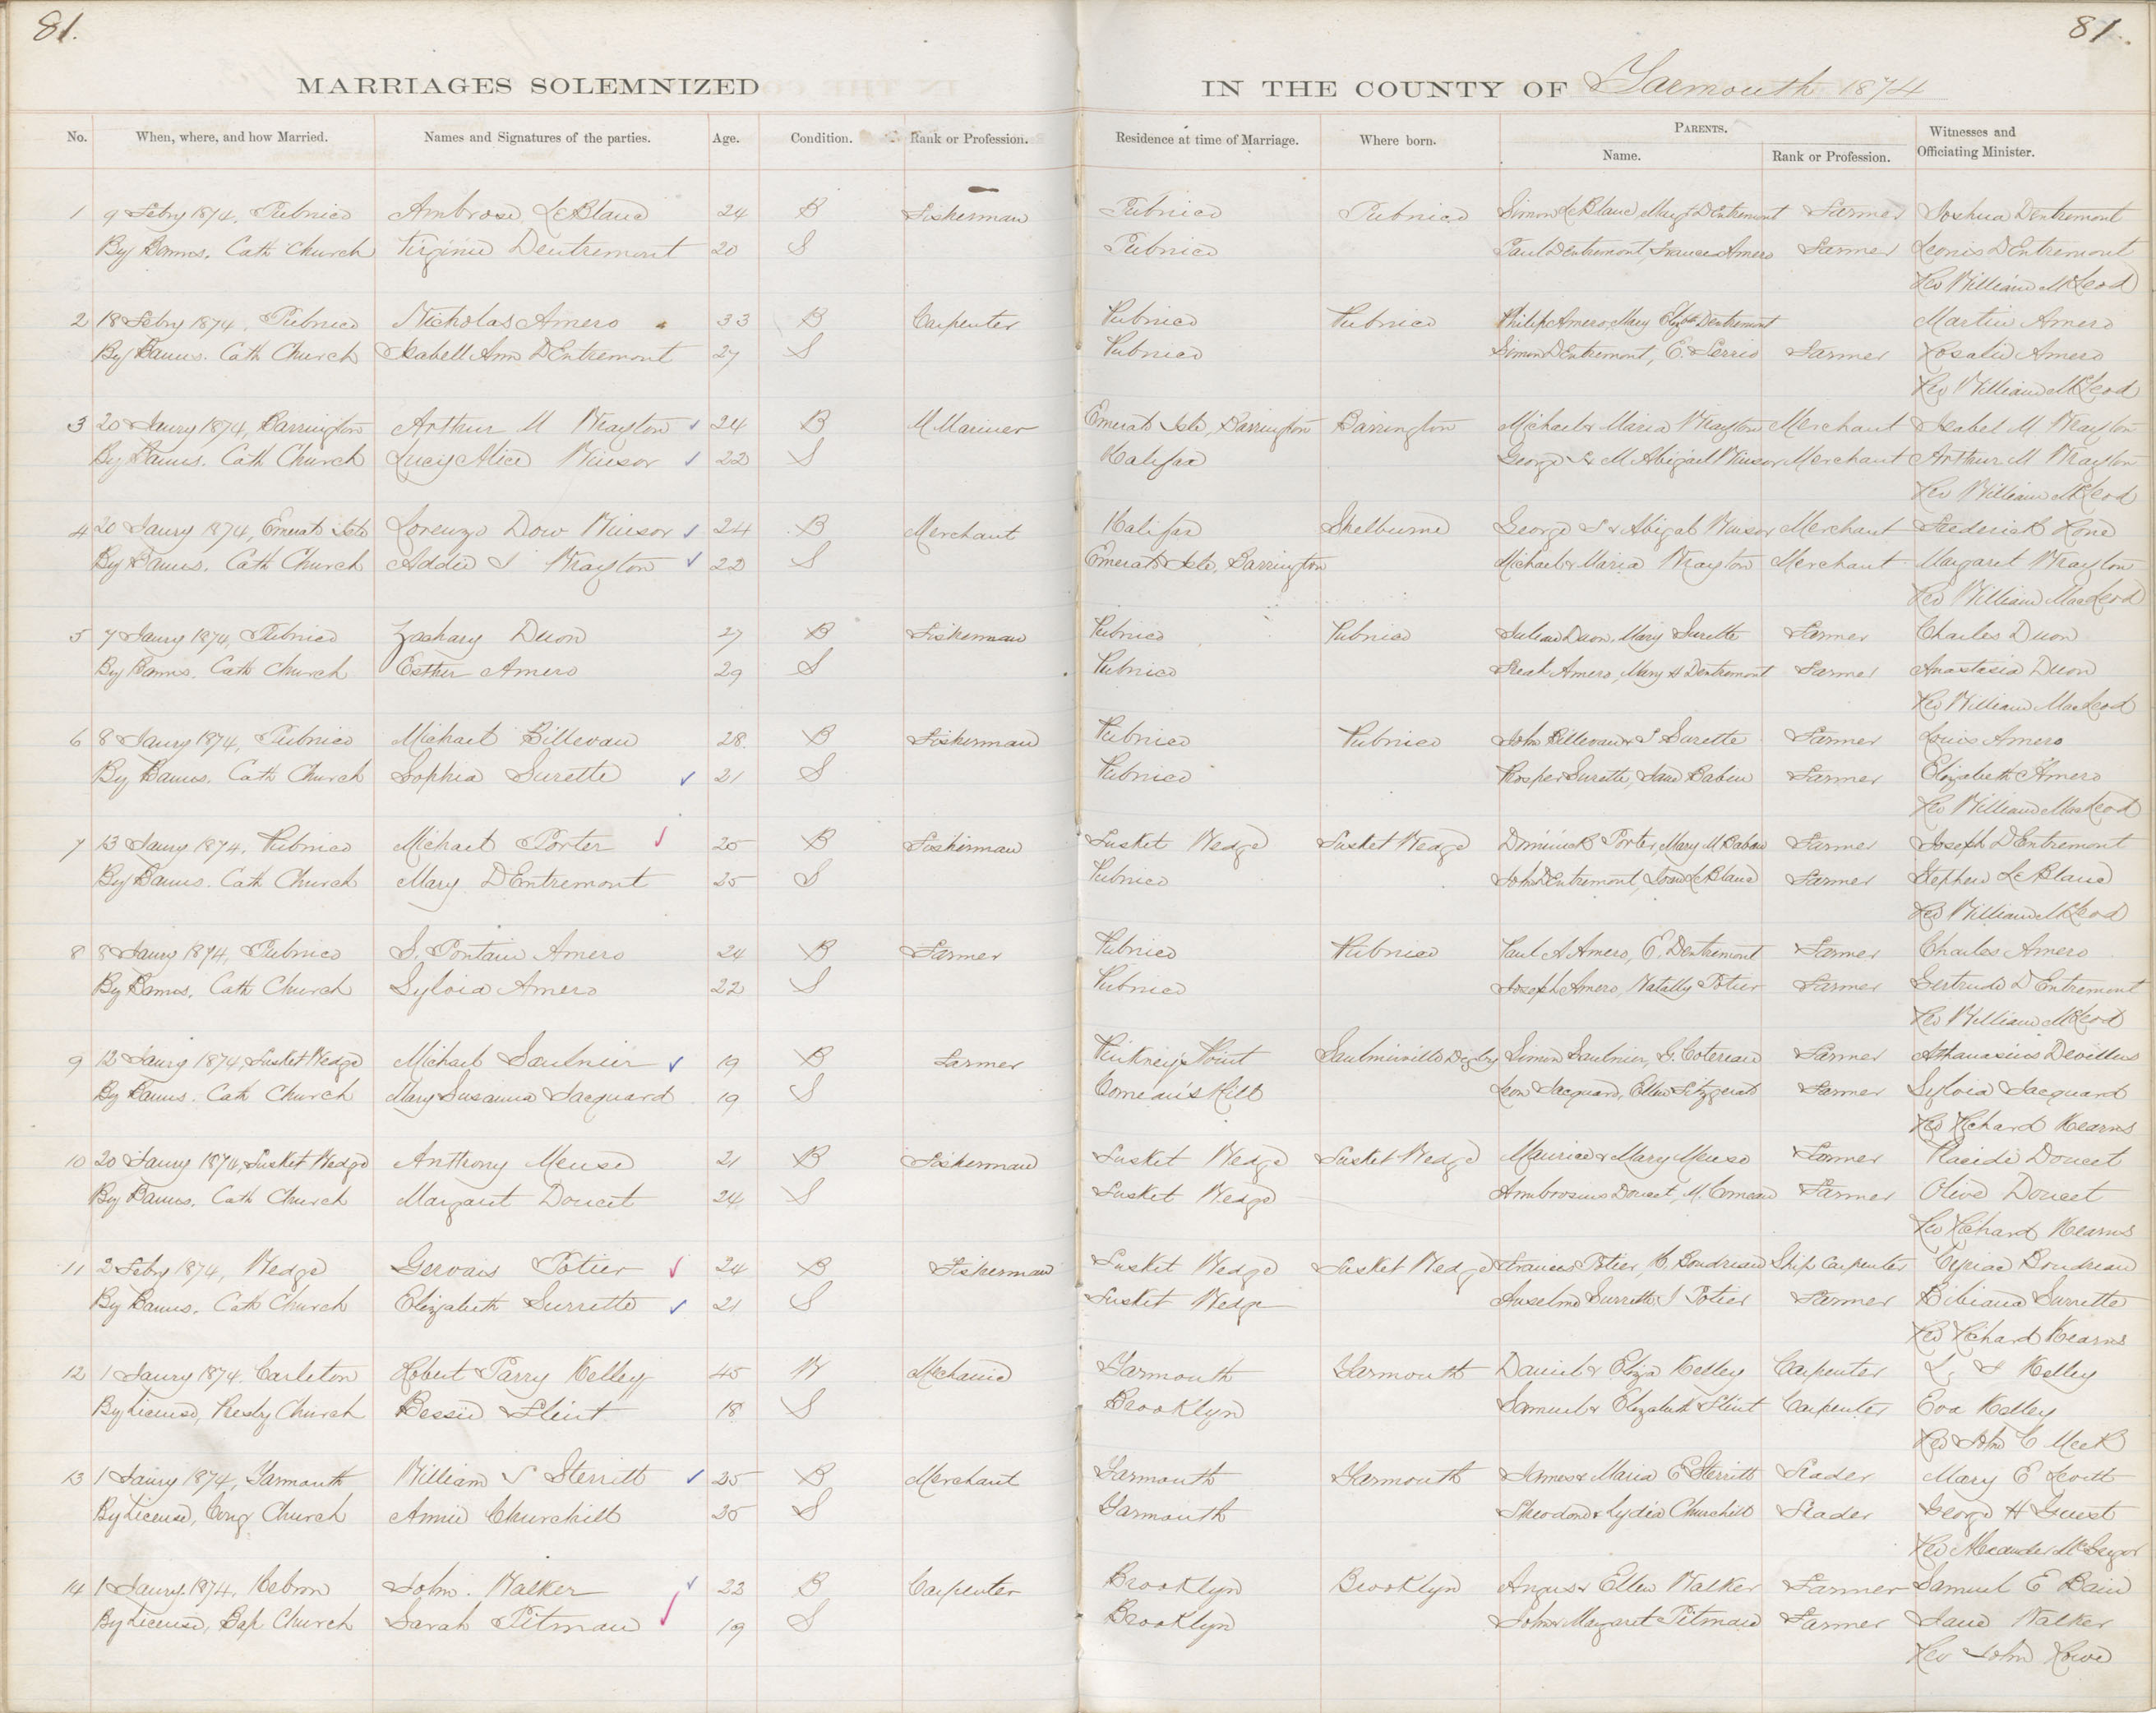 81.
81.
MARRIAGES SOLEMNIZED IN THE COUNTY OF Yarmouth 1874
No. When, where, and how Married. Names and Signatures of the parties. Age. Condition. Rank or Profession. Residence at time of Marriage. Where born. PARENTS. Name. Rank or Profession. Witnesses and Officiating Minister.
1 9 Febry 1874, Pubnico Ambrose LeBlanc 24 B Fisherman Pubnico Pubnico Simon LeBlanc Margt DEntremont Farmer Joshua Dentremont
By Banns. Cath Church Virginie Dentremont 20 S Pubnico Paul Dentremont, Frances Amero Farmer Leonis DEntremont
Rev William McLeod
2 18 Febry 1874, Pubnico Nicholas Amero 33 B Carpenter Pubnico Pubnico Philip Amero, Mary Elizbt Dentremont Martin Amero
By Banns. Cath Church Isabell Ann DEntremont 27 S Pubnico Simon DEntremont, E. Farmer Rosalie Amero
Rev William McLeod
3 20 Jaury 1874, Barrington Arthur M Wrayton 24 B M Mariner Emerald Isle, Barrington Barrington Michael & Maria Wrayton Merchant Isabel M. Wrayton
By Banns. Cath Church Lucy Alice Winsor 22 S Halifax George & M Abigail Winsor Merchant Arthur M Wrayton
Rev William McLeod
4 20 Jaury 1874, Emerald Isle Lorenzo Dow Winsor 24 B Merchant Halifax Shelburne George S & Abigal Winsor Merchant Frederick Kone
By Banns. Cath Church Addie S Wrayton 22 S Emerald Isle, Barrington Michael & Maria Wrayton Merchant Margaret Wrayton
Rev William MacLeod
5 7 Jaury 1874, Pubnico Zachary Duon 27 B Fisherman Pubnico Pubnico Julian Duon, Mary Surette Farmer Charles Duon
By Banns. Cath Church Esther Amero 29 S Pubnico Amero, Mary H Dentremont Farmer Anastasia Duon
Rev William MacLeod
6 8 Jaury 1874, Pubnico Michael Billevau 28 B Fisherman Pubnico Pubnico John Billevau & S Surette Farmer Louis Amero
By Banns. Cath Church Sophia Surette 21 S Pubnico Prosper Surette, Jane Babin Farmer Elizabeth Amero
Rev William MacLeod
7 13 Jaury 1874, Pubnico Michael Porter 25 B Fisherman Tusket Wedge Tusket Wedge Dominick Porter, Mary M Babin Farmer Joseph DEntremont
By Banns. Cath Church Mary DEntremont 25 S Pubnico John DEntremont, LeBlanc Farmer Stephen LeBlanc
Rev William McLeod
8 8 Jaury 1874, Pubnico S. Pontain Amero 24 B Farmer Pubnico Pubnico Paul A Amero, E. Dentremont Farmer Charles Amero
By Banns. Cath Church Sylvia Amero 22 S Pubnico Joseph Amero, Natally Potier Farmer Gertrude DEntremont
Rev William McLeod
9 12 Jaury 1874, Tusket Wedge Michael Saulnier 19 B Farmer Pinkney's Point Saulnierville Digby Simon Saulnier, G. Cotereau Farmer Athanasius Devillers
By Banns. Cath Church Mary Susanna Jacquard 19 S Comeau's Hill Leon Jacquard, Ellen Fitzgerald Farmer Sylvia Jacquard
Rev Richard Kearns
10 20 Jaury 1874, Tusket Wedge Anthony Meuse 21 B Fisherman Tusket Wedge Tusket Wedge Maurice & Mary Meuse Farmer Placide Doucet
By Banns. Cath Church Margaret Doucet 24 S Tusket Wedge Ambrosius Doucet, M. Comeau Farmer Olive Doucet
Rev Richard Kearns
11 2 Febry 1874, Wedge Gervais Potier 24 B Fisherman Tusket Wedge Tusket Wedge Francis Potier, C. Boudreau Ship Carpenter Cyriac Boudreau
By Banns. Cath Church Elizabeth Surrette 21 S Tusket Wedge Anselme Surrette, S Potier Farmer Bibiana Surrette
Rev Richard Kearns
12 1 Jaury 1874, Carleton Robert Parry Kelley 45 W Mechanic Yarmouth Yarmouth Daniel & Eliza Kelley Carpenter L. S Kelley
By License, Presby Church Bessie Flint 18 S Brooklyn Samuel & Elizabeth Flint Carpenter Eva Kelley
Rev John C Meek
13 1 Jaury 1874, Yarmouth William S Sterritt 25 B Merchant Yarmouth Yarmouth James & Maria E Sterritt Trader Mary E Lovitt
By License, Cong Church Annie Churchill 25 S Yarmouth Theodore & Lydia Churchill Trader George H Guest
Rev Alexander McGregor
14 1 Jaury 1874, Hebron John. Walker 22 B Carpenter Brooklyn Brooklyn Angus & Ellen Walker Farmer Samuel E Bain
By License, Bap Church Sarah Pitman 19 S Brooklyn John & Margaret Pitman Farmer Jane Walker
Rev John Rowe